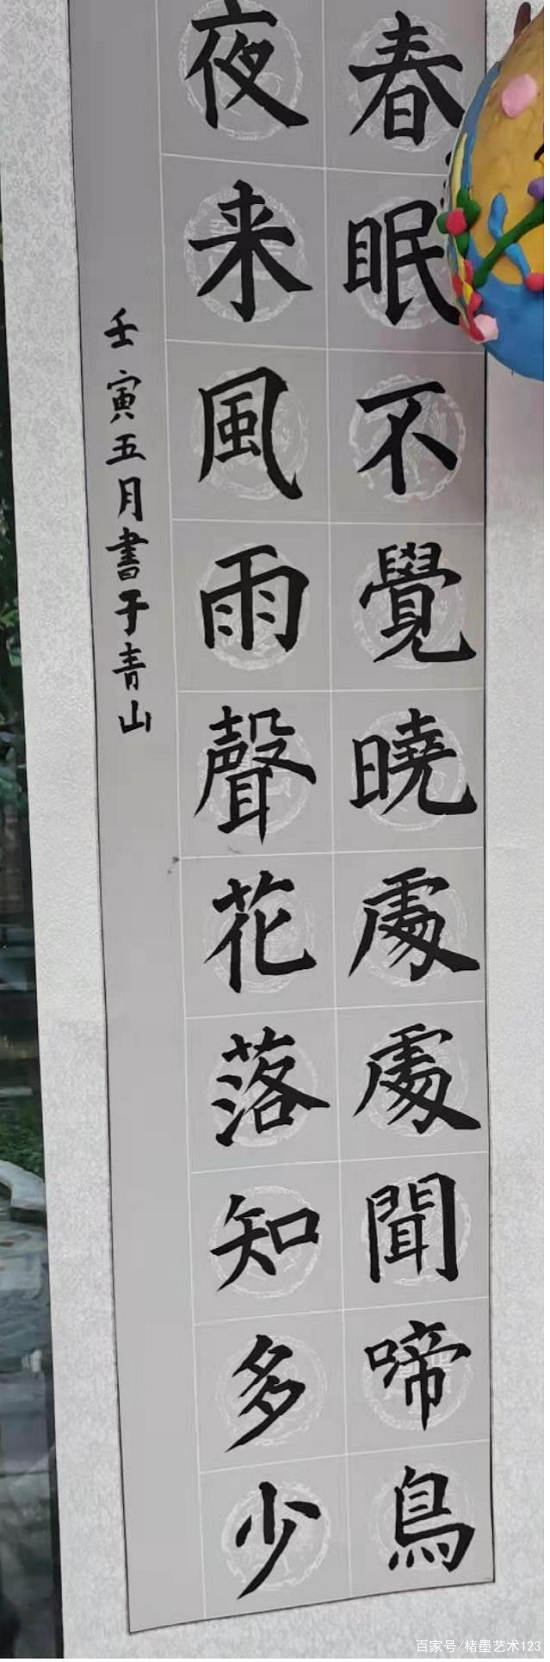 春眠不覺曉處處聞啼鳥
夜来風雨聲花落知多少
壬寅五月書于青山
百家号/楮墨艺术123